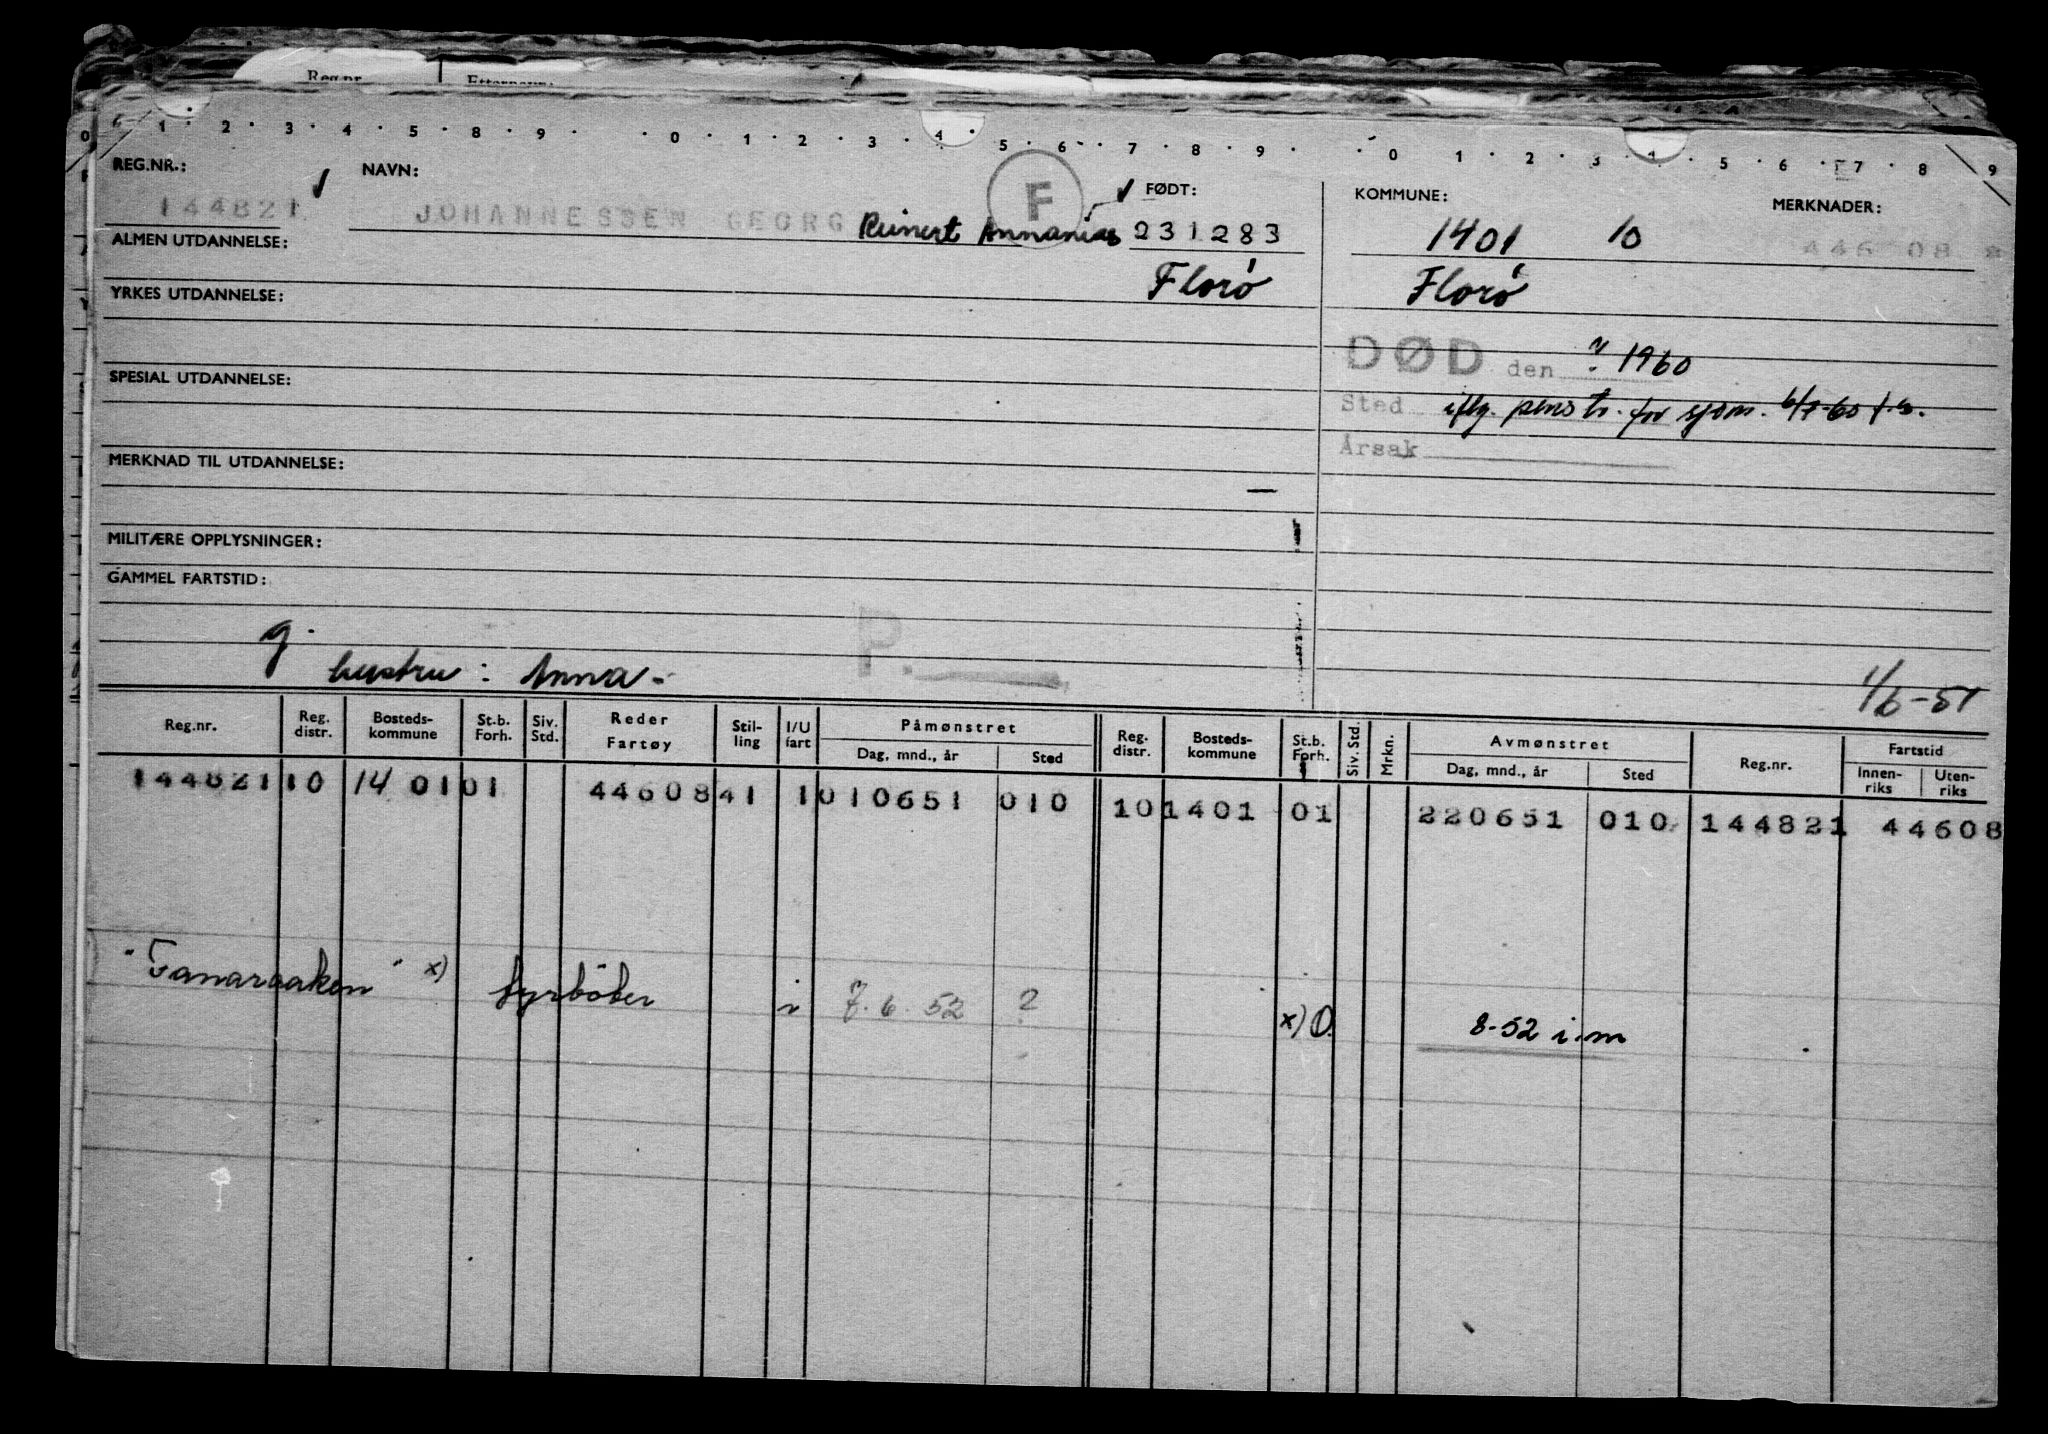 Reg.nr. Etternavn:
0 1 2 3 4 5 8 9 0 1 2 3 4 5 6 7 8 9 0 1 2 3 4 5 6 7 8 9
REG.NR.: NAVN: F FØDT: KOMMUNE: MERKNADER:
144821 JOHANNESSEN GEORG Reinert Annanias 231283 1401 10 446 08
ALMEN UTDANNELSE:
Florø Florø
YRKES UTDANNELSE:
DØD den ? 1960
SPESIAL UTDANNELSE:
Sted iflg. penstr. for sjøm. 6/7-60
Årsak
MERKNAD TIL UTDANNELSE:
MILITÆRE OPPLYSNINGER:
GAMMEL FARTSTID:
g. P.
hustru : Anna - 1/6-51
Reg.nr. Reg. distr. Bosteds-kommune St.b. Forh. Siv. Std. Reder Fartøy Stil-ling I/U fart Påmønstret Dag, mnd., år Sted Reg. distr. Bosteds-kommune St.b. Forh. Siv. Std. Mrkn. Avmønstret Dag, mnd., år Sted Reg.nr. Fartstid Innen-riks Uten-riks
144821 10 14 01 01 44608 41 1 010651 010 10 1401 01 220651 010 144821 44608
"Fanaraaken" x) fyrbøter i 7.6.52 ? x) O. 8-52 i.m